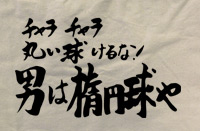 チャラ チャラ
丸い球けるな!
男は楕円球や